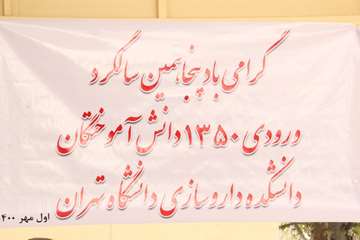 گرامی باد پنجاهمین سالگرد
ورودی ۱۳۵۰ دانش آموختگان
دانشکده داروسازی دانشگاه تهران
اول مهر ۴۰۰